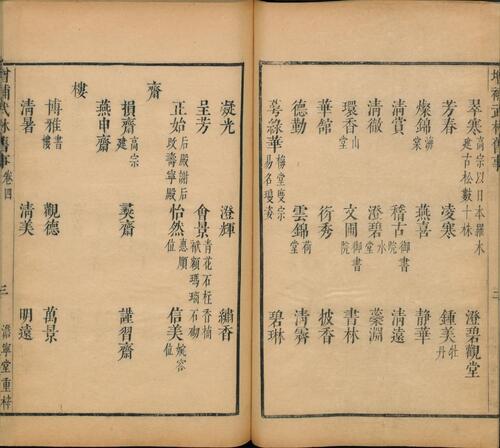 增補武林舊事
翠寒高宗以日本羅木建古松數十株 澄碧觀堂
芳春 凌寒 鍾美牡丹
燦錦海棠 燕喜 靜華
清賞 稽古御書院 清遠
清徹 澄碧水堂 蘂淵
環香山堂 文囿御書院 書林
華館 衍秀 披香
德勤 雲錦荷堂 清霽
萼綠華梅堂度宗易名瓊姿 碧琳
凝光 澄輝 繡香
呈芳 會景青花石柱香楠袱額瑪瑙石砌
正始后殿謝后改壽寧殿 怡然惠順位 信美婉容位
齋
損齋高宗建 彝齋 謹習齋
燕申齋
樓
博雅書樓 觀德 萬景
清暑 清美 明遠
增補武林舊事 卷四 三 澹寧堂重梓